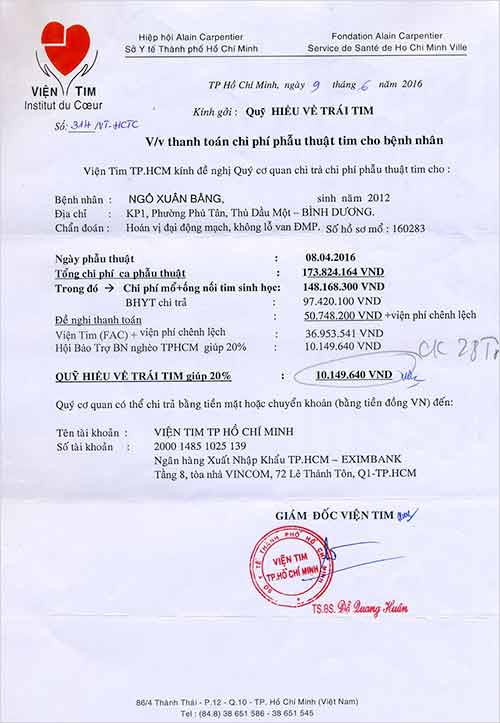 Hiệp hội Alain Carpentier
Sở Y tế Thành phố Hồ Chí Minh
Fondation Alain Carpentier
Service de Santé de Ho Chi Minh Ville
VIỆN TIM
Institut du Cœur
Số: 314 /VT-HCTC
TP Hồ Chí Minh, ngày 9 tháng 6 năm 2016
Kính gởi : Quỹ HIỂU VỀ TRÁI TIM
V/v thanh toán chi phí phẫu thuật tim cho bệnh nhân
Viện Tim TP.HCM kính đề nghị Quý cơ quan chi trả chi phí phẫu thuật tim cho :
Bệnh nhân : NGÔ XUÂN BẰNG, sinh năm 2012
Địa chỉ : KP1, Phường Phú Tân, Thủ Dầu Một – BÌNH DƯƠNG.
Chẩn đoán : Hoán vị đại động mạch, không lỗ van ĐMP. Số hồ sơ mổ : 160283
Ngày phẫu thuật : 08.04.2016
Tổng chi phí ca phẫu thuật : 173.824.164 VND
Trong đó → Chi phí mổ+ống nối tim sinh học: 148.168.300 VND
BHYT chi trả : 97.420.100 VND
Đề nghị thanh toán : 50.748.200 VND +viện phí chênh lệch
Viện Tim (FAC) + viện phí chênh lệch : 36.953.541 VND
Hội Bảo Trợ BN nghèo TPHCM giúp 20% : 10.149.640 VND
CK 28Tr
QUỸ HIỂU VỀ TRÁI TIM giúp 20% : 10.149.640 VND
Quý cơ quan có thể chi trả bằng tiền mặt hoặc chuyển khoản (bằng tiền đồng VN) đến:
Tên tài khoản : VIỆN TIM TP HỒ CHÍ MINH
Số tài khoản : 2000 1485 1025 139
Ngân hàng Xuất Nhập Khẩu TP.HCM – EXIMBANK
Tầng 8, tòa nhà VINCOM, 72 Lê Thánh Tôn, Q1-TP.HCM
GIÁM ĐỐC VIỆN TIM
SỞ Y TẾ THÀNH PHỐ HỒ CHÍ MINH
VIỆN TIM
TP.HỒ CHÍ MINH
TS.BS. Đỗ Quang Huân
86/4 Thành Thái - P.12 - Q.10 - TP. Hồ Chí Minh (Việt Nam)
Tel : (84.8) 38 651 586 - 38 651 545